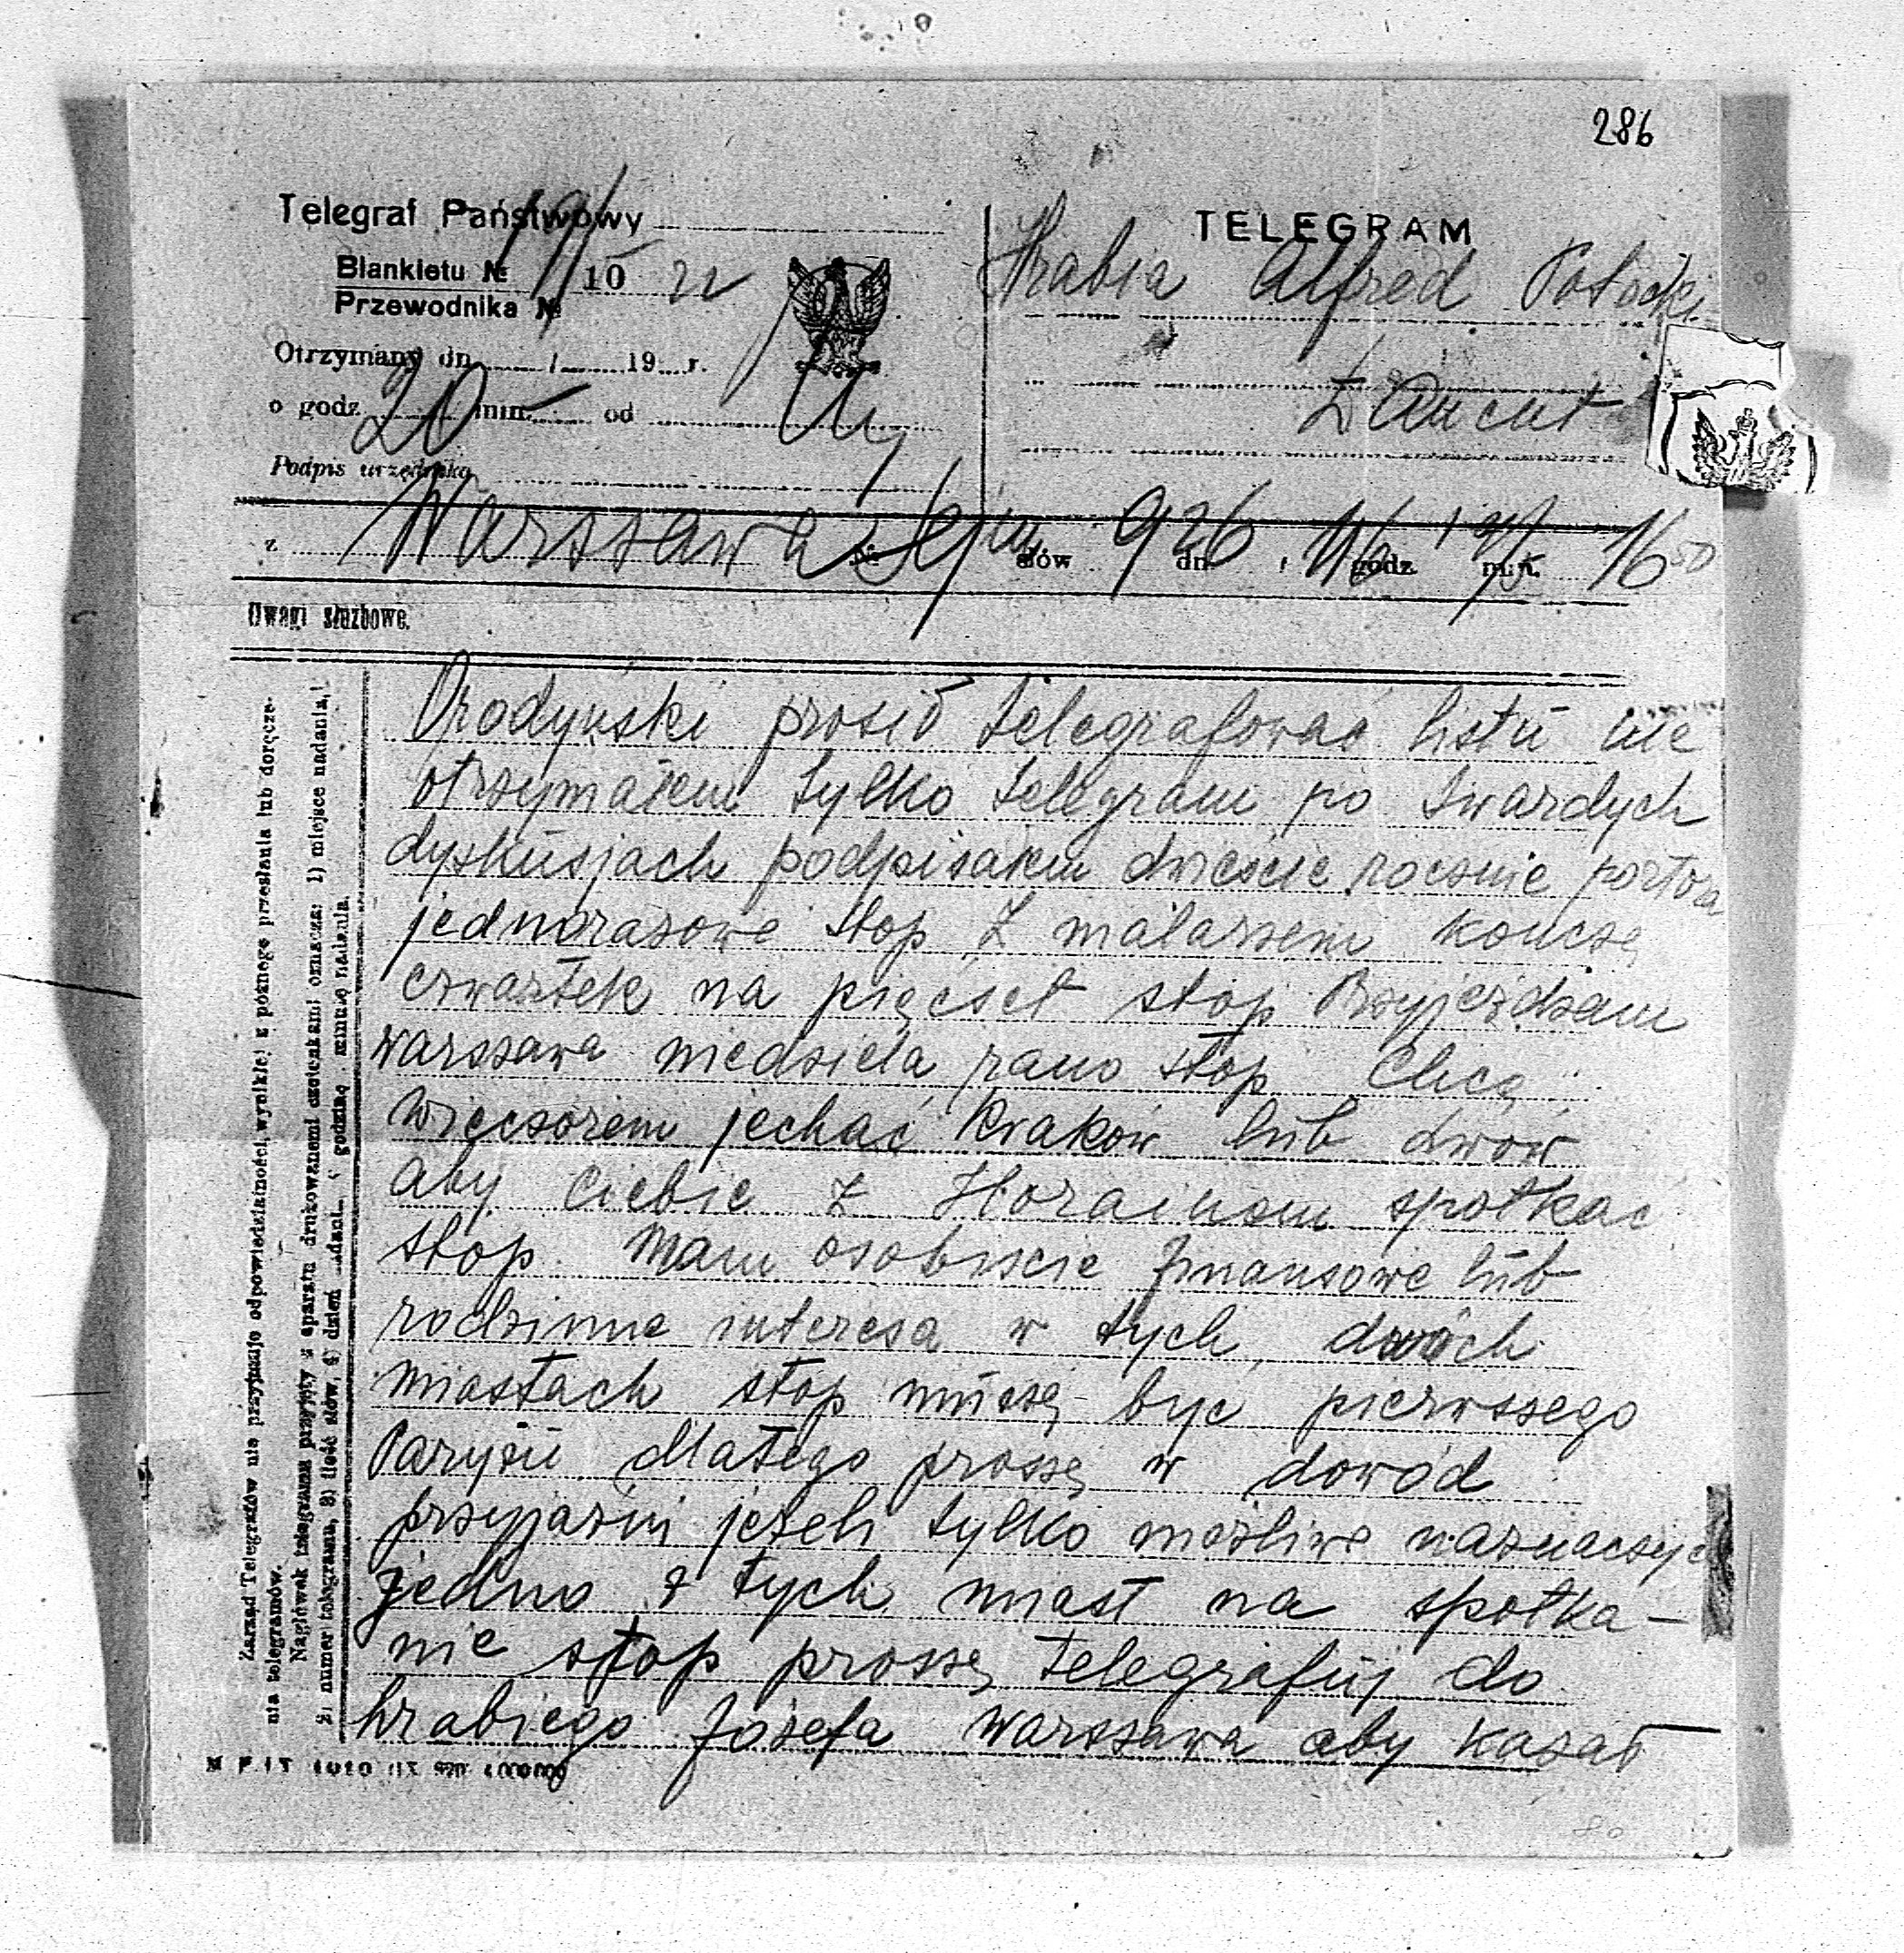 286
Telegraf Państwowy
Blankietu №
Przewodnika №
19/10 22
Otrzymany dn. / 19 r.
o godz. 20 min. od
Podpis urzędnika
TELEGRAM
Hrabia Alfred Potocki
Łańcut
z Warszawa № słów 926 dn. / godz. min. 16 50
Uwagi służbowe.
prosił telegrafować listu nie
otrzymałem tylko telegram po twardych
dyskusjach podpisałem dwieście rocznie portora
jednorasowe stop Z malarzem koncze
czwartek na pięcset stop Przyjeżdzam
warszawa niedziela rano stop Chcę
wieczorem jechać Krakow lub Lwow
aby Ciebie z Horainom spotkac
stop Mam osobiscie finansowe lub
rodzinne interesa w tych dwoch
miastach stop muszę byc pierwszego
Paryzu dlatego proszę w dowód
przyjazni jeżeli tylko możliwe naznaczyć
jedno z tych miast na spotka-
nie stop proszę telegrafuj do
hrabiego Józefa Warszawa aby kazał
Zarząd Telegrafów nie przyjmuje odpowiedzialności, wynikłej z późnego przesłania lub doręcze-
nia telegramów.
Nagłówek telegramu przyjęty z aparatu drukowanemi czcionkami oznacza: 1) miejsce nadania,
2) numer telegramu, 3) ilość słów, 4) dzień godzinę i minutę nadania.